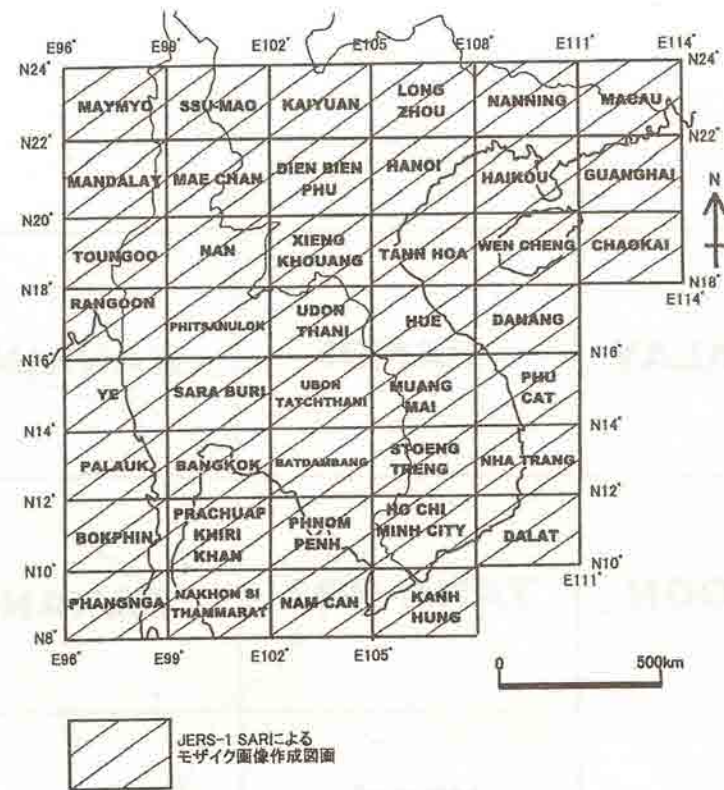 E96° E99° E102° E105° E108° E111° E114°
N24° N24°
MAYMYO SSU-MAO KAIYUAN LONG ZHOU NANNING MACAU
N22° N22°
MANDALAY MAE CHAN DIEN BIEN PHU HANOI HAIKOU GUANGHAI
N
N20° N20°
TOUNGOO NAN XIENG KHOUANG TANN HOA WEN CHENG CHAOKAI
N18° N18°
E114°
RANGOON PHITSANULOK UDON THANI HUE DANANG
N16° N16°
YE SARA BURI UBON TATCHTHANI MUANG MAI PHU CAT
N14° N14°
PALAUK BANGKOK BATDAMBANG STOENG TRENG NHA TRANG
N12° N12°
BOKPHIN PRACHUAP KHIRI KHAN PHNOM PENH HO CHI MINH CITY DALAT
N10° N10°
E111°
PHANGNGA NAKHON SI THAMMARAT NAM CAN KANH HUNG
N8°
E96° E99° E102° E105°
0 500km
JERS-1 SARによる
モザイク画像作成図画